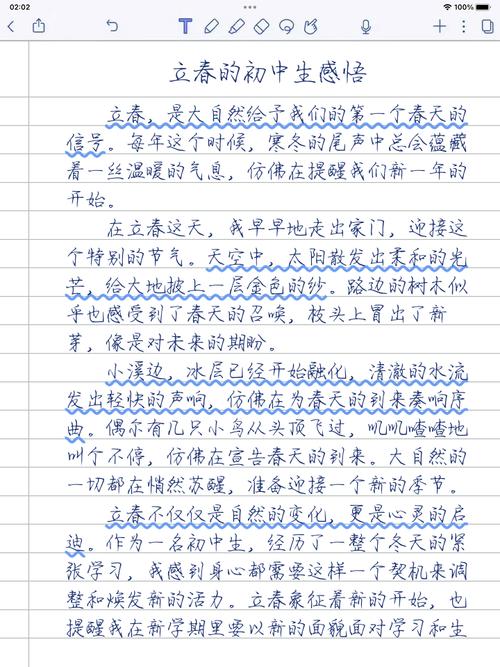 02:02
100%
立春的初中生感悟
立春，是大自然给予我们的第一个春天的
信号。每年这个时候，寒冬的尾声中总会蕴藏
着一丝温暖的气息，仿佛在提醒我们新一年的
开始。
在立春这天，我早早地走出家门，迎接这
个特别的节气。天空中，太阳散发出柔和的光
芒，给大地披上一层金色的纱。路边的树木似
乎也感受到了春天的召唤，枝头上冒出了新
芽，像是对未来的期盼。
小溪边，冰层已经开始融化，清澈的水流
发出轻快的声响，仿佛在为春天的到来奏响序
曲。偶尔有几只小鸟从头顶飞过，叽叽喳喳地
叫个不停，仿佛在宣告春天的到来。大自然的
一切都在悄然苏醒，准备迎接一个新的季节。
立春不仅仅是自然的变化，更是心灵的启
迪。作为一名初中生，经历了一整个冬天的紧
张学习，我感到身心都需要这样一个契机来调
整和焕发新的活力。立春象征着新的开始，也
提醒我在新学期里要以新的面貌面对学习和生